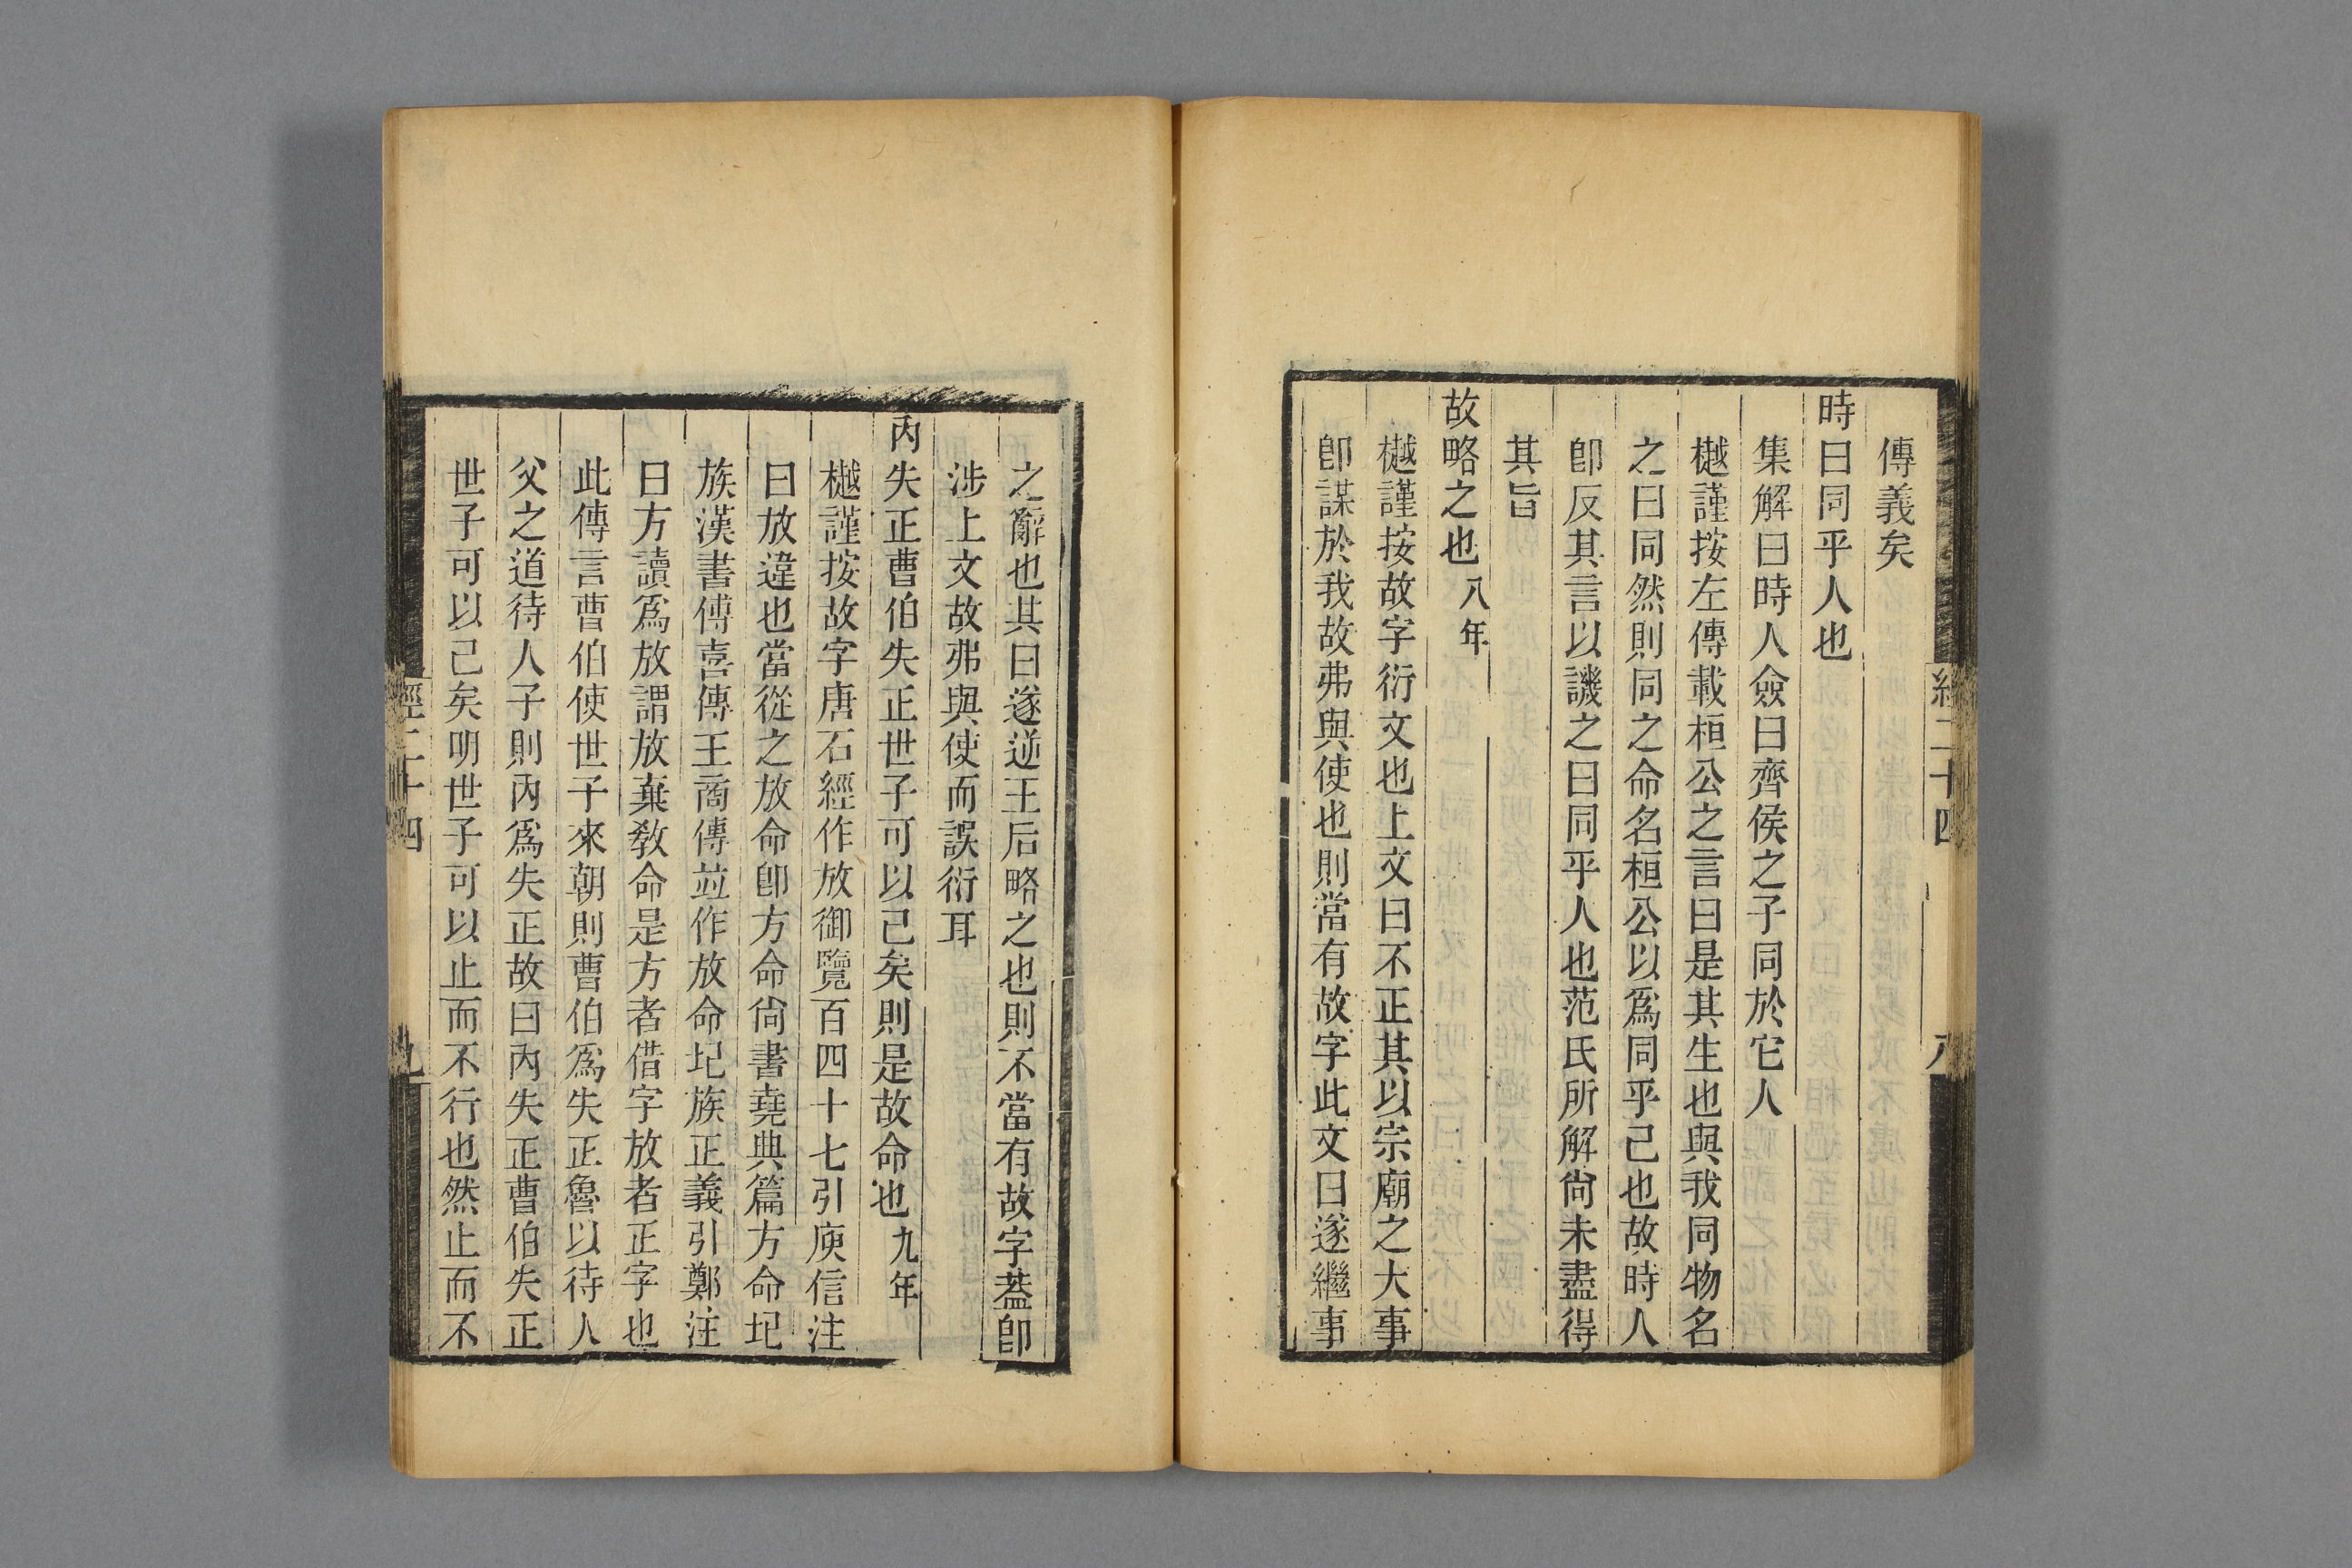 傳義矣
時曰同乎人也
集解曰時人僉曰齊侯之子同於它人
樾謹按左傳載桓公之言曰是其生也與我同物名
之曰同然則同之命名桓公以爲同乎己也故時人
卽反其言以譏之曰同乎人也范氏所解尙未盡得
其旨
故略之也八年
樾謹按故字衍文也上文曰不正其以宗廟之大事
卽謀於我故弗與使也則當有故字此文曰遂繼事
之辭也其曰遂逆王后略之也則不當有故字葢卽
涉上文故弗與使而誤衍耳
內失正曹伯失正世子可以已矣則是故命也九年
樾謹按故字唐石經作放御覽百四十七引庾信注
曰放違也當從之放命卽方命尙書堯典篇方命圮
族漢書傅喜傳王商傳竝作放命圮族正義引鄭注
曰方讀爲放謂放棄敎命是方者借字放者正字也
此傳言曹伯使世子來朝則曹伯爲失正魯以待人
父之道待人子則內爲失正故曰內失正曹伯失正
世子可以已矣明世子可以止而不行也然止而不
經二十四
九